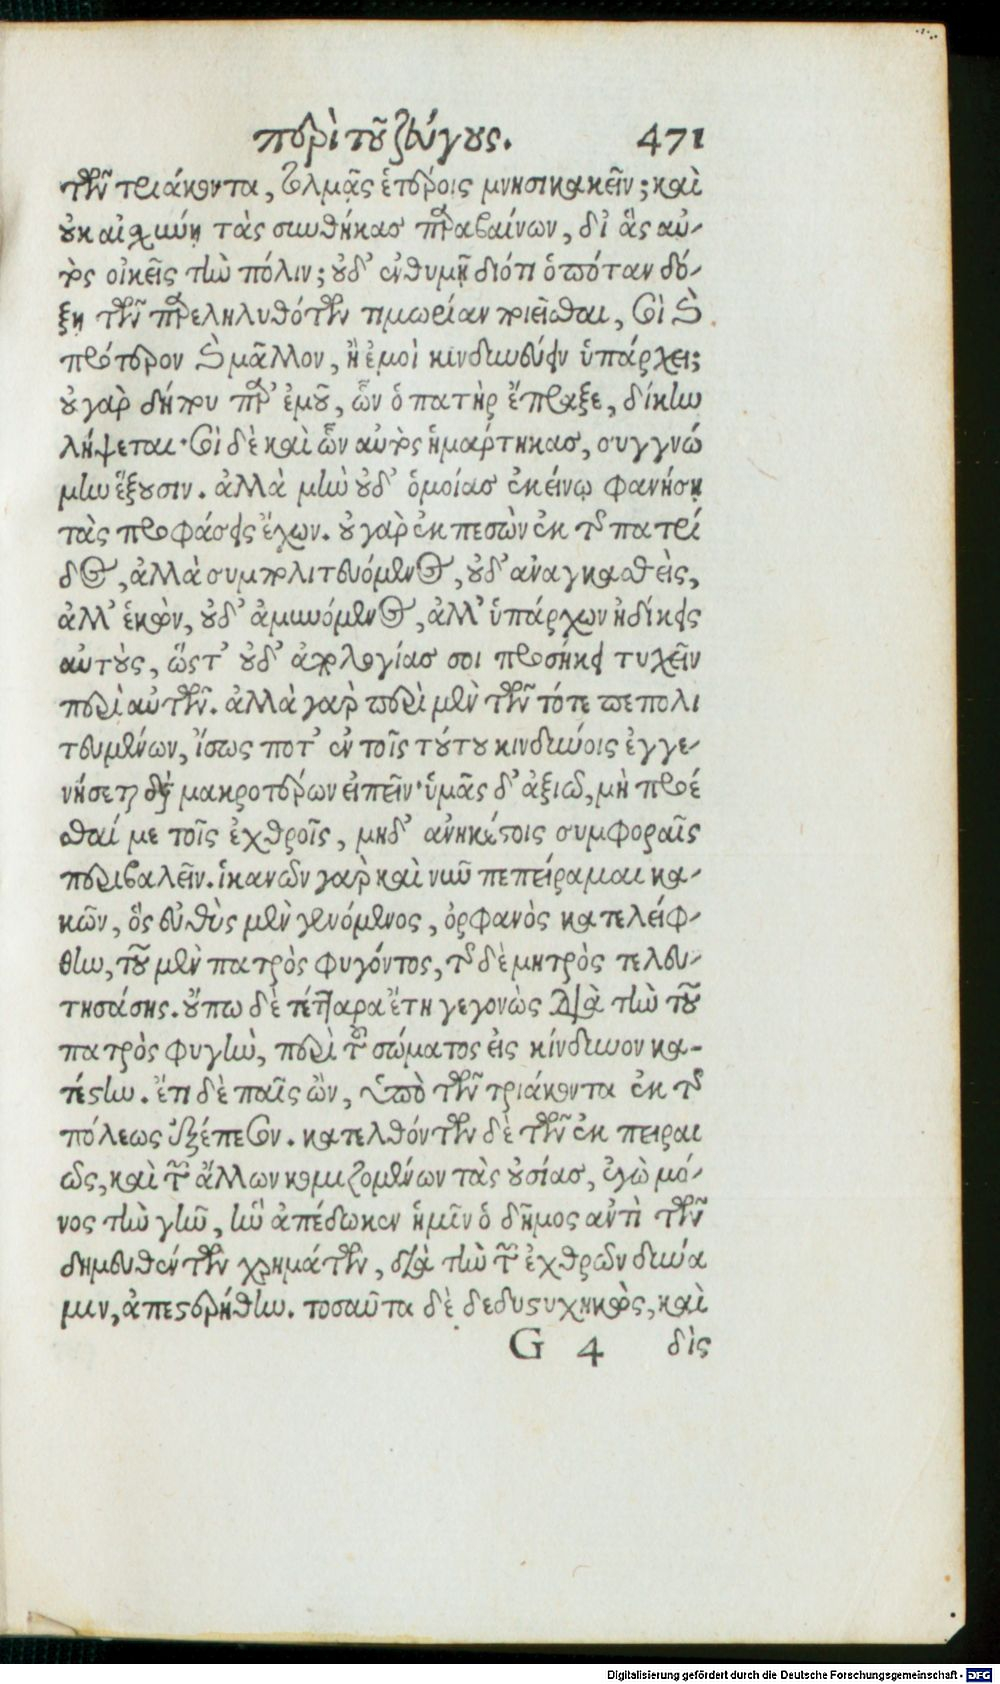 περὶ τοῦ ζεύγους. 471
τῶν τριάκοντα, τολμᾷς ἑτέροις μνησικακεῖν; καὶ
οὐκ αἰσχύνῃ τὰς συνθήκας παραβαίνων, δι' ἃς αὐ-
τὸς οἰκεῖς τὴν πόλιν; οὐδ' ἐνθυμῇ διότι ὁπόταν δό-
ξῃ τῶν παρεληλυθότων τιμωρίαν ποιεῖσθαι, σοὶ καὶ
πρότερον καὶ μᾶλλον, ἢ ἐμοὶ κινδυνεύειν ὑπάρχει;
οὐ γὰρ δήπου παρ' ἐμοῦ, ὧν ὁ πατὴρ ἔπραξε, δίκην
λήψεται· σοὶ δὲ καὶ ὧν αὐτὸς ἡμάρτηκας, συγγνώ
μην ἕξουσιν. ἀλλὰ μὴν οὐδ' ὁμοίας ἐκείνῳ φανήσῃ
τὰς προφάσεις ἔχων. οὐ γὰρ ἐκπεσὼν ἐκ τῆς πατρί
δος, ἀλλὰ συμπολιτευόμενος, οὐδ' ἀναγκασθεὶς,
ἀλλ' ἑκὼν, οὐδ' ἀμυνόμενος, ἀλλ' ὑπάρχων ἠδίκεις
αὐτοὺς, ὥστ' οὐδ' ἀπολογίας σοι προσήκει τυχεῖν
περὶ αὐτῶν. ἀλλὰ γὰρ περὶ μὲν τῶν τότε πεπολι
τευμένων, ἴσως ποτ' ἐν τοῖς τούτου κινδύνοις ἐγγε-
νήσεται δὴ μακροτέρων εἰπεῖν· ὑμᾶς δ' ἀξιῶ, μὴ προέ
σθαί με τοῖς ἐχθροῖς, μηδ' ἀνηκέστοις συμφοραῖς
περιβαλεῖν. ἱκανῶν γὰρ καὶ νῦν πεπείραμαι κα-
κῶν, ὃς εὐθὺς μὲν γενόμενος, ὀρφανὸς κατελείφ-
θην, τοῦ μὲν πατρὸς φυγόντος, τῆς δὲ μητρὸς τελευ-
τησάσης. οὔπω δὲ τέτταρα ἔτη γεγονὼς διὰ τὴν τοῦ
πατρὸς φυγὴν, περὶ τοῦ σώματος εἰς κίνδυνον κα-
τέστην. ἔτι δὲ παῖς ὢν, ὑπὸ τῶν τριάκοντα ἐκ τῆς
πόλεως ἐξέπεσον. κατελθόντων δὲ τῶν ἐκ πειραι
ῶς, καὶ τῶν ἄλλων κομιζομένων τὰς οὐσίας, ἐγὼ μό-
νος τὴν γῆν, ἣν ἀπέδωκεν ἡμῖν ὁ δῆμος ἀντὶ τῶν
δημευθέντων χρημάτων, διὰ τὴν τῶν ἐχθρῶν δύνα
μιν, ἀπεστερήθην. τοσαῦτα δὲ δεδυστυχηκὼς, καὶ
G 4 δὶς
Digitalisierung gefördert durch die Deutsche Forschungsgemeinschaft - DFG